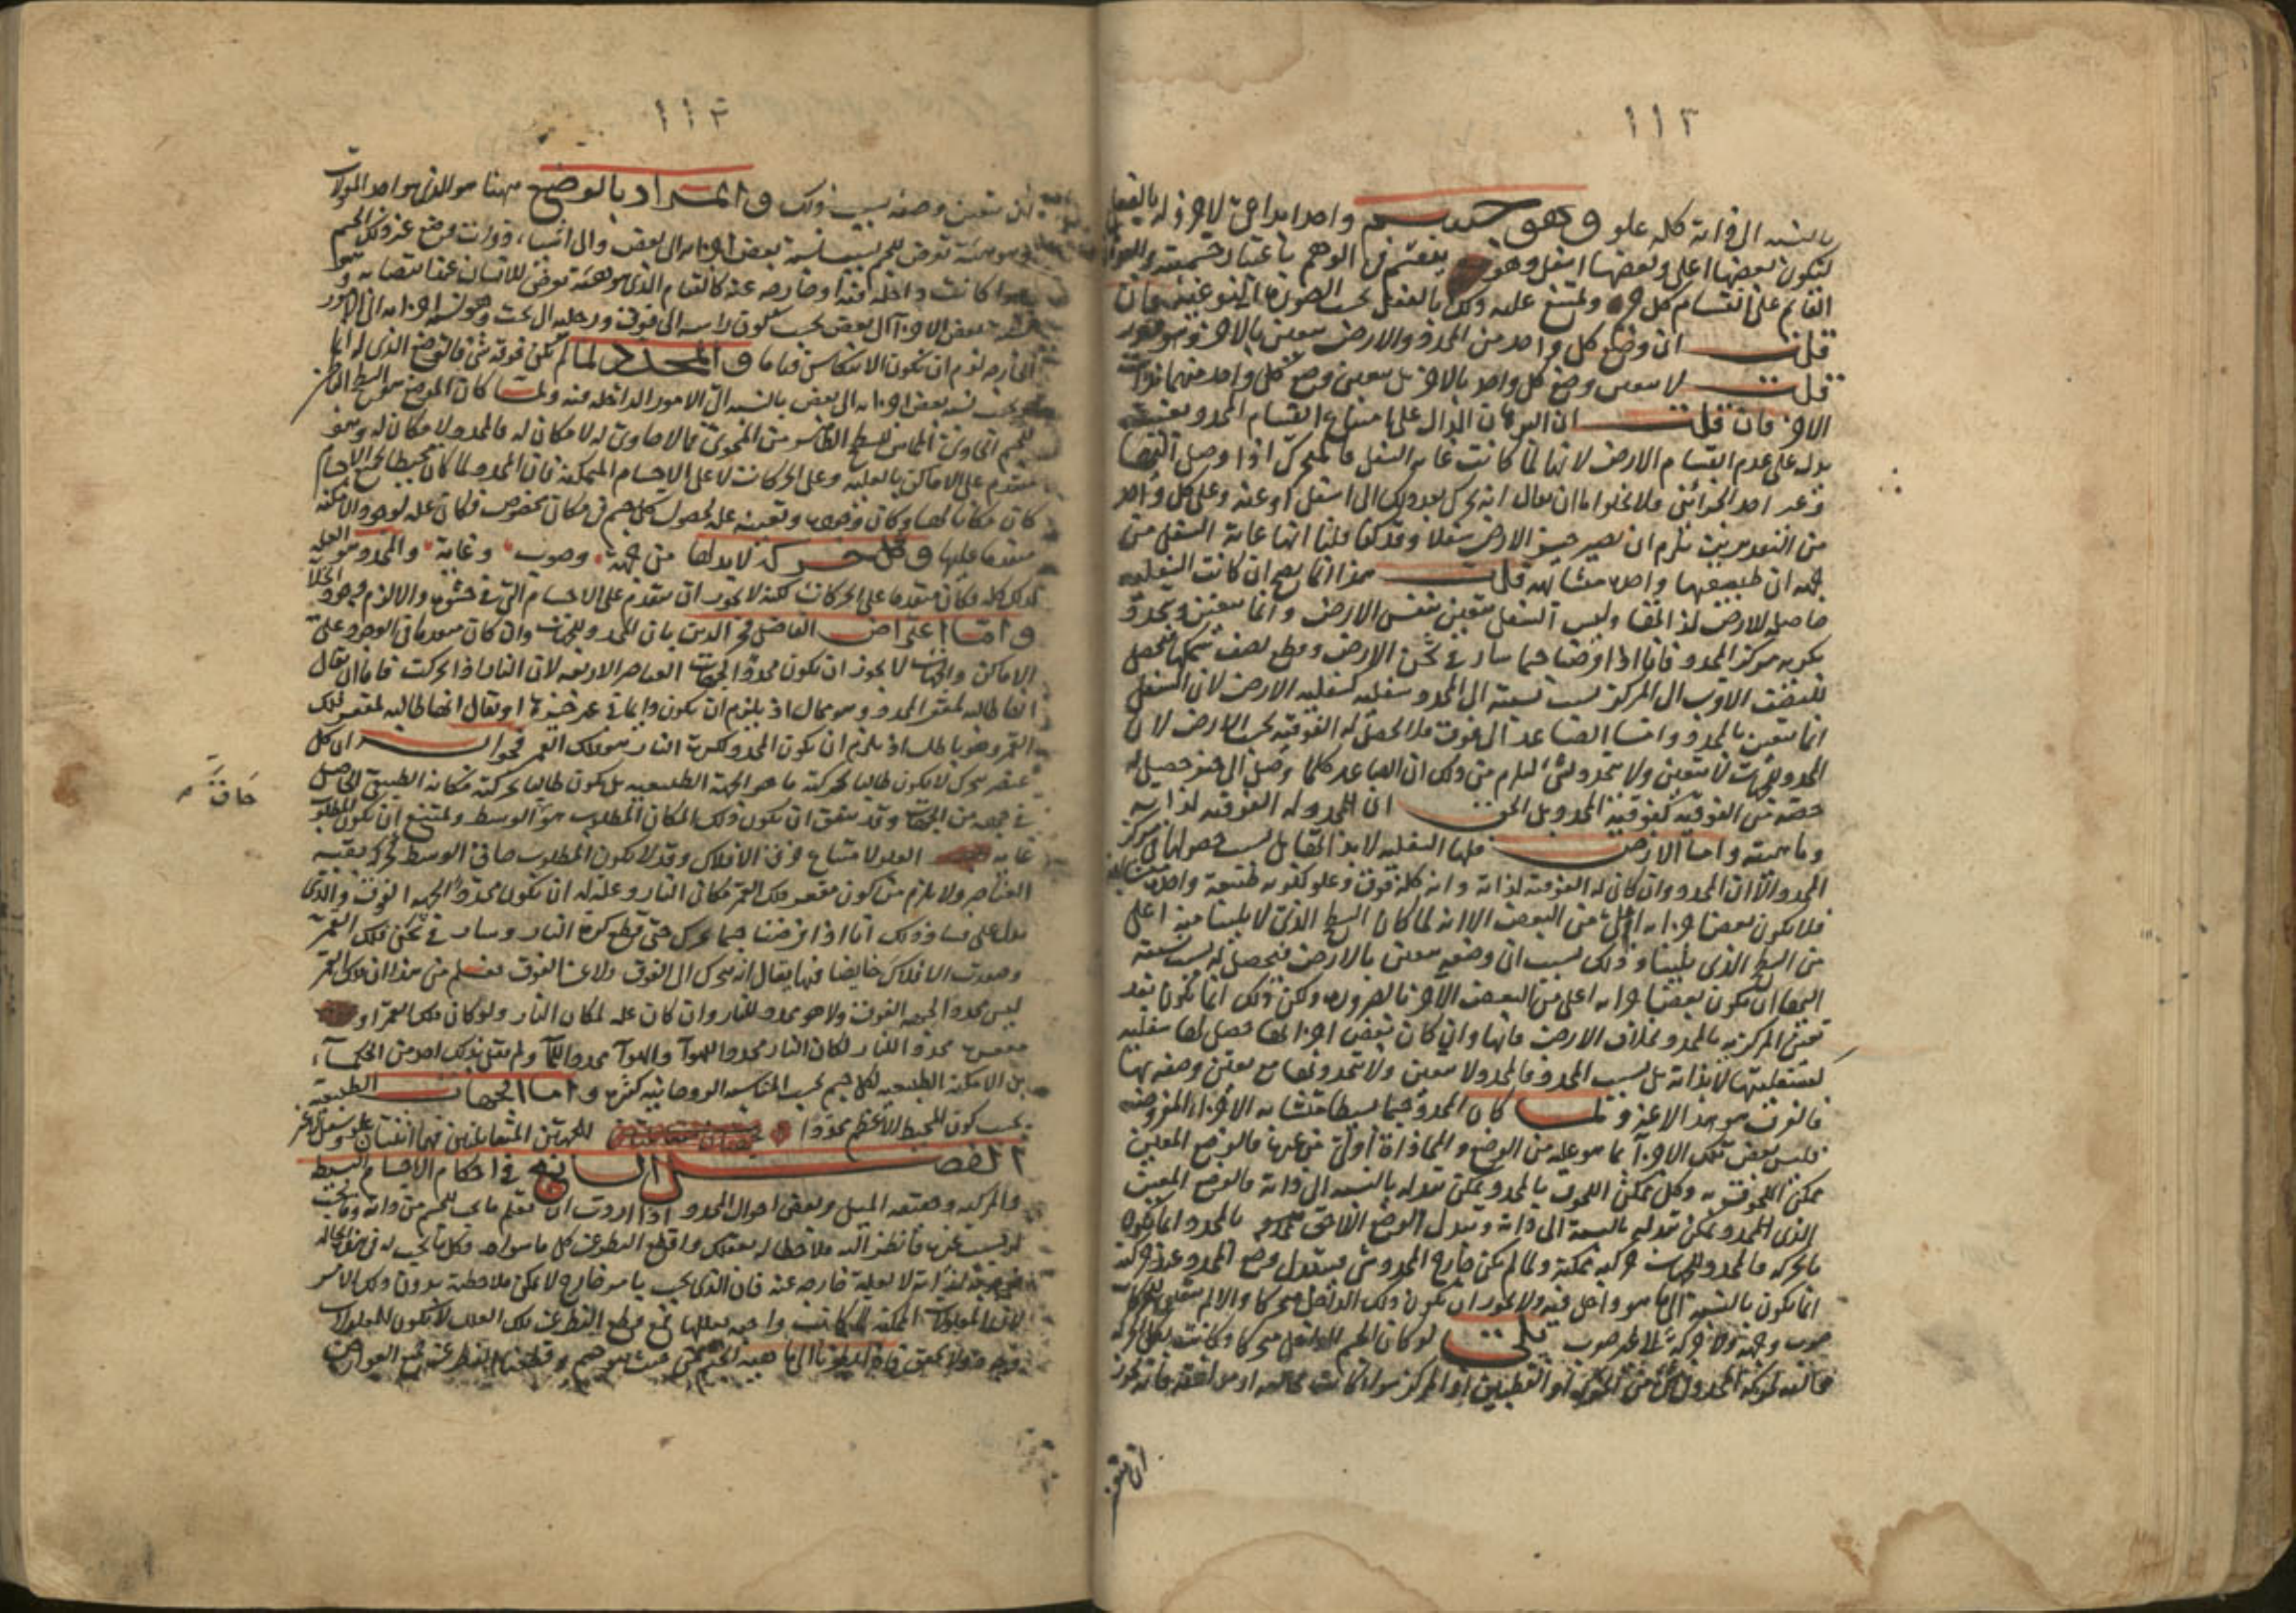 ١١٣
بالنسبة الى ذاته كله علو وهو جسم واحد ابداعى لا جزء له بالفعل
ليكون بعضها اعلى وبعضها اسفل وهو ينقسم فى الوهم باعتبار جسميته
القائم على انقسام كل ويمتنع عليه ذلك بالفعل بحسب الصورة النوعية فان
قلت ان وضع كل واحد من المحدد والارض معين بالاخر وهو دور
قلت لا يتعين وضع كل واحد بالاخر بل يتعين وضع كل واحد منهما بذات
الاخر فان قلت ان البرهان الدال على امتناع انقسام المحدد بعينه
يدل على عدم انقسام الارض لانها لما كانت غاية السفل فالمتحرك اذا وصل اليها
وعبر احد الجزأين فلا يخلو اما ان يقال انه يتحرك بعد ذلك الى اسفل او عنه وعلى كل واحد
من التقديرين يلزم ان يصير جزء الارض سفلا وقد كنا قلنا انها غاية السفل من
جهة ان طبيعتها واحدة متشابهة قلت هذا انما يصح ان كانت السفلية
حاصلة للارض لذاتها وليس السفل يتعين بنفس الارض وانما يتعين ويتحدد
بكونه مركز المحدد فانا اذا فرضنا جسما سار فى ثخن الارض وقطع نصف سمكها فيحصل
للنصف الاقرب الى المركز بسبب نسبته الى المحدد سفلية كسفلية الارض لان السفل
انما يتعين بالمحدد واما الصاعد الى فوق فلا يحصل له الفوقية بحسب الارض لان
المحدد للجهات لا يتعين ولا يتحدد بشئ ليلزم من ذلك ان الصاعد كلما وصل الى جزء حصل له
حصة من الفوقية كفوقية المحدد بل الحق ان المحدد له الفوقية لذاته
وماهيته واما الارض فلها السفلية لا بذاتها بل بسبب حصولها فى مركز
المحدد الا ان المحدد وان كان له الفوقية لذاته وانه كله فوق وعلو لكونه طبيعة واحدة
فلا يكون بعض اجزائه اعلى من البعض الا انه لما كان السطح الذى لا يلينا منه اعلى
من السطح الذى يلينا وذلك بسبب ان وضعه معين بالارض فيحصل له بسبب نسبته
اليها ان يكون بعض اجزائه اعلى من البعض الآخر بالضرورة ولكن ذلك انما يكون بعد
تعين المركزية بالمحدد بخلاف الارض فانها وان كان بعض اجزائها حصل لها سفلية
كسفليتها لا بذاته بل بسبب المحدد فالمحدد لا يتعين ولا يتحدد بها مع تعين وضعه بها
فالفوق هو هذا لا غير ولما كان المحدد جسما بسيطا متشابه الاجزاء المفروضة
فليس بعض تلك الاجزاء بما هو عليه من الوضع والمحاذاة اولى من غيره فالوضع المعين
ممكن اللحوق به وكل ممكن اللحوق بالمحدد يمكن تبدله بالنسبة الى ذاته فالوضع المعين
الذى للمحدد يمكن تبدله بالنسبة الى ذاته وتبدل الوضع اللاحق بالمحدد انما يكون
بالحركة فالمحدد للجهات حركته ممكنة ولما لم يكن خارج المحدد شئ فتبدل وضع المحدد عند حركته
انما يكون بالنسبة الى ما هو داخل فيه ولا يجوز ان يكون ذلك الداخل متحركا والا لم
صوب وجهة ولا حركة الا لها صوب بلى لو كان الجسم الداخل متحركا وكانت تلك الحركة
ان يتعين
١١٣
يتعين وضعه بسبب ذلك والمراد بالوضع ههنا هو الذى هو احد المقولات
وهو هيئة تعرض للجسم بسبب نسبة بعض اجزائه الى بعض والى اشياء ذوات وضع عن ذلك الجسم
سواء كانت داخلة فيه او خارجة عنه كالقيام الذى هو هيئة تعرض للانسان عند انتصابه
بعض الاجزاء الى بعض بحسب كون رأسه الى فوق ورجليه الى تحت ونسبة اجزائه الى الامور
الخارجة لزم ان يكون الانتكاس قياما والمحدد لما لم يكن فوقه شئ فالوضع الذى له انما
هو بحسب نسبة بعض اجزائه الى بعض بالنسبة الى الامور الداخلة فيه ولما كان الموضع هو السطح الباطن
للجسم الحاوى المماس للسطح الظاهر من المحوى فما لا حاوى له لا مكان له فالمحدد لا مكان له وهو
متقدم على الاماكن بالعلية وعلى الحركات لا على الاجسام المتمكنة فان المحدد لما كان محيطا بجميع الاجسام
كان مكانا لها وكان وجوده وتعينه علة لحصول كل جسم فى مكان مخصوص فكان علة لوجود الامكنة
متقدما عليها وكل حركة لا بد لها من جهة وصوب وغاية والمحدد هو العلة
لذلك كله فكان متقدما على الحركات لكنه لا يجوز ان يتقدم على الاجسام التى فى حشوه والا لزم وجود الخلا
واما اعتراض الفاضل فخر الدين بان المحدد للجهات وان كان متقدما فى الوجود على
الاماكن والجهات لا يجوز ان يكون محددا لجهات العناصر الاربعة لان النار اذا تحركت فاما ان يقال
انها طالبة لمقعر المحدد وهو محال اذ يلزم ان يكون دائما فى غير حيزها او يقال انها طالبة لمقعر فلك
القمر وهو باطل اذ يلزم ان يكون المحدد لكرة النار هو فلك القمر فجوابه ان كل
عنصر يتحرك لا يكون طالبا بحركته ما هو الجهة الطبيعية بل يكون طالبا بحركته مكانه الطبيعى الحاصل
فى جهة من الجهات وقد يتفق ان يكون ذلك المكان المطلوب هو الوسط ويمتنع ان يكون المطلوب
حاق
غاية العلو لامتناع خرق الافلاك وقد لا يكون المطلوب حاق الوسط كحركة بقية
العناصر ولا يلزم من كون مقعر فلك القمر مكان النار وعلة له ان يكون محددا لجهة الفوق والذى
يدل على فساد ذلك انا اذا فرضنا جسما تحرك حتى قطع كرة النار وسار فى ثخن فلك القمر
وصوب الافلاك خائضا فيها يقال انه يتحرك الى الفوق ولا عن الفوق فعلم من هذا ان فلك القمر
ليس محددا لجهة الفوق ولا هو محدد للنار وان كان علة لمكان النار ولو كان فلك القمر او
مقعره محددا للنار لكان النار محددا للهواء والهواء محددا للماء ولم يقل بذلك احد من الحكماء
بل الامكنة الطبيعية لكل جسم بحسب المناسبة الروحانية لنفسه واما الجهات الطبيعية
بحسب كون المحيط الاعظم محددا للجهتين المتقابلتين فهما اثنتان علو وسفل لا غير
الفصل السابع فى احكام الاجسام البسيطة
والمركبة وحقيقة الميل وبعض احوال المحدد اذا اردت ان تعلم ما يجب للجسم من ذاته وما يجب
له بسبب غيره فانظر اليه ملاحظا له بعقلك واقطع النظر عن كل ما سواه فكل ما يجب له فى هذه الحالة
فهو يجب لذاته لا لعلة خارجة عنه فان الذى يجب بامر خارج لا يمكن ملاحظته بدون ذلك الامر